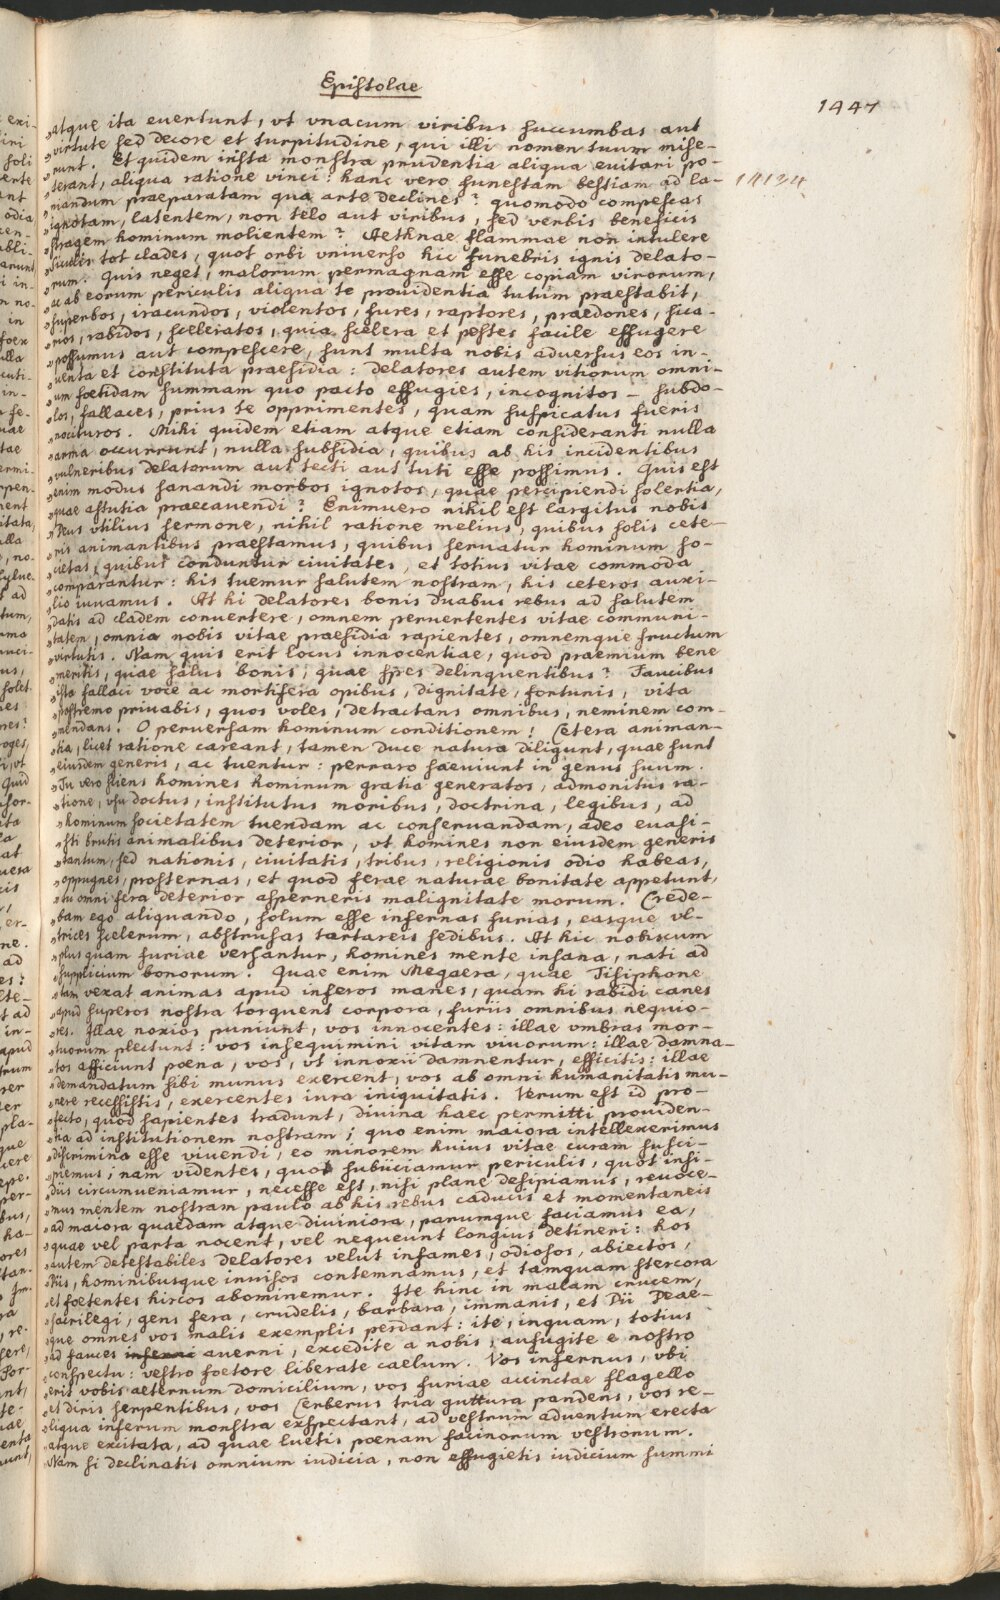 Epistolae
1447
„atque ita euertunt, vt vnacum viribus succumbas aut
„virtute sed decore et turpitudine, qui illi nomen tuum mise-
„runt. Et quidem iusta monstra prudentia aliqua euitari po-
„terant, aliqua ratione vinci: hanc vero funestam bestiam ad la-
14134
„niandum praeparatam qua arte declines? quomodo compescas
„ignotam, latentem, non telo aut viribus, sed verbis beneficis
„stragem hominum molientem? Aethnae flammae non intulere
„Siculis tot clades, quot orbi vniuerso hic funebris ignis delato-
„rum. Quis neget, malorum permagnam esse copiam virorum,
„ac ab eorum periculis aliqua te prouidentia tutum praestabit,
„superbos, iracundos, violentos, fures, raptores, praedones, sica-
„rios, rabidos, sceleratos, quia scelera et pestes facile effugere
„possumus aut compescere, sunt multa nobis aduersus eos in-
„uenta et constituta praesidia: delatores autem vitiorum omni-
„um foetidam summam quo pacto effugies, incognitos – subdo-
„los, fallaces, prius te opprimentes, quam suspicatus fueris
„nocituros. Mihi quidem etiam atque etiam consideranti nulla
„arma occurrunt, nulla subsidia, quibus ab his incidentibus
„vulneribus delatorum aut tecti aut tuti esse possimus. Quis est
„enim modus sanandi morbos ignotos, quae percipiendi solertia,
„quae astutia praecauendi? Enimuero nihil est largitus nobis
„Deus vtilius sermone, nihil ratione melius, quibus solis cete-
„ris animantibus praestamus, quibus seruatur hominum so-
„cietas, quibus conduntur ciuitates, et totius vitae commoda
„comparantur: his tuemur salutem nostram, his ceteros auxi-
„lio iuuamus. At hi delatores bonis duabus rebus ad salutem
„datis ad cladem conuertere, omnem peruertentes vitae communi-
„tatem, omnia nobis vitae praesidia rapientes, omnemque fructum
„virtutis. Nam quis erit locus innocentiae, quod praemium bene
„meritis, quae salus bonis, quae spes delinquentibus? Faucibus
„ista fallaci voce ac mortifera opibus, dignitate, fortunis, vita
„postremo priuabis, quos voles, detractans omnibus, neminem com-
„mendans. O peruersam hominum conditionem! Cetera animan-
„tia, licet ratione careant, tamen duce natura diligunt, quae sunt
„eiusdem generis, ac tuentur: perraro saeuiunt in genus suum.
„Tu vero sciens homines hominum gratia generatos, admonitus ra-
„tione, vsu doctus, institutus moribus, doctrina, legibus, ad
„hominum societatem tuendam ac conseruandam, adeo euasi-
„sti brutis animalibus deterior, vt homines non eiusdem generis
„tantum, sed nationis, ciuitatis, tribus, religionis odio habeas,
„oppugnes, prosternas, et quod ferae naturae bonitate appetunt,
„tu omni fera deterior asperneris malignitate morum. Crede-
„bam ego aliquando, solum esse infernas furias, easque vl-
„trices scelerum, abstrusas tartareis sedibus. At hic nobiscum
„plus quam furiae versantur, homines mente insana, nati ad
„supplicium bonorum. Quae enim Megaera, quae Tisiphone
„tam vexat animas apud inferos manes, quam hi rabidi canes
„apud superos nostra torquent corpora, furiis omnibus nequio-
„res. Illae noxios puniunt, vos innocentes: illae vmbras mor-
„tuorum plectunt: vos insequimini vitam viuorum: illae damna-
„tos afficiunt poena, vos, vt innoxii damnentur, efficitis: illae
„demandatum sibi munus exercent, vos ab omni humanitatis mu-
„nere recessistis, exercentes iura iniquitatis. Verum est id pro-
„fecto, quod sapientes tradunt, diuina haec permitti prouiden-
„tia ad institutionem nostram; quo enim maiora intellexerimus
„discrimina esse viuendi, eo minorem huius vitae curam susci-
„piemus; nam videntes, quot subiiciamur periculis, quot insi-
„diis circumueniamur, necesse est, nisi plane desipiamus, reuoce-
„mus mentem nostram paulo ab his rebus caducis et momentaneis
„ad maiora quaedam atque diuiniora, parumque faciamus ea,
„quae vel parta nocent, vel nequeunt longius detineri: hos
„autem detestabiles delatores velut infames, odiosos, abiectos,
„Diis, hominibusque inuisos contemnamus, et tamquam stercora
„et foetentes hircos abominemur. Ite hinc in malam crucem,
„sacrilegi, gens fera, crudelis, barbara, immanis, et Dii Deae-
„que omnes vos malis exemplis perdant: ite, inquam, totius
„ad fauces inferni auerni, excedite a nobis, aufugite e nostro
„conspectu: vestro foetore liberate caelum. Vos infernus, vbi
„erit vobis aeternum domicilium, vos furiae accinctae flagello
„et diris serpentibus, vos Cerberus tria guttura pandens, vos re-
„liqua inferum monstra exspectant, ad vestrum aduentum erecta
„atque excitata, ad quae luetis poenam facinorum vestrorum.
„Nam si declinatis omnium iudicia, non effugietis iudicium summi